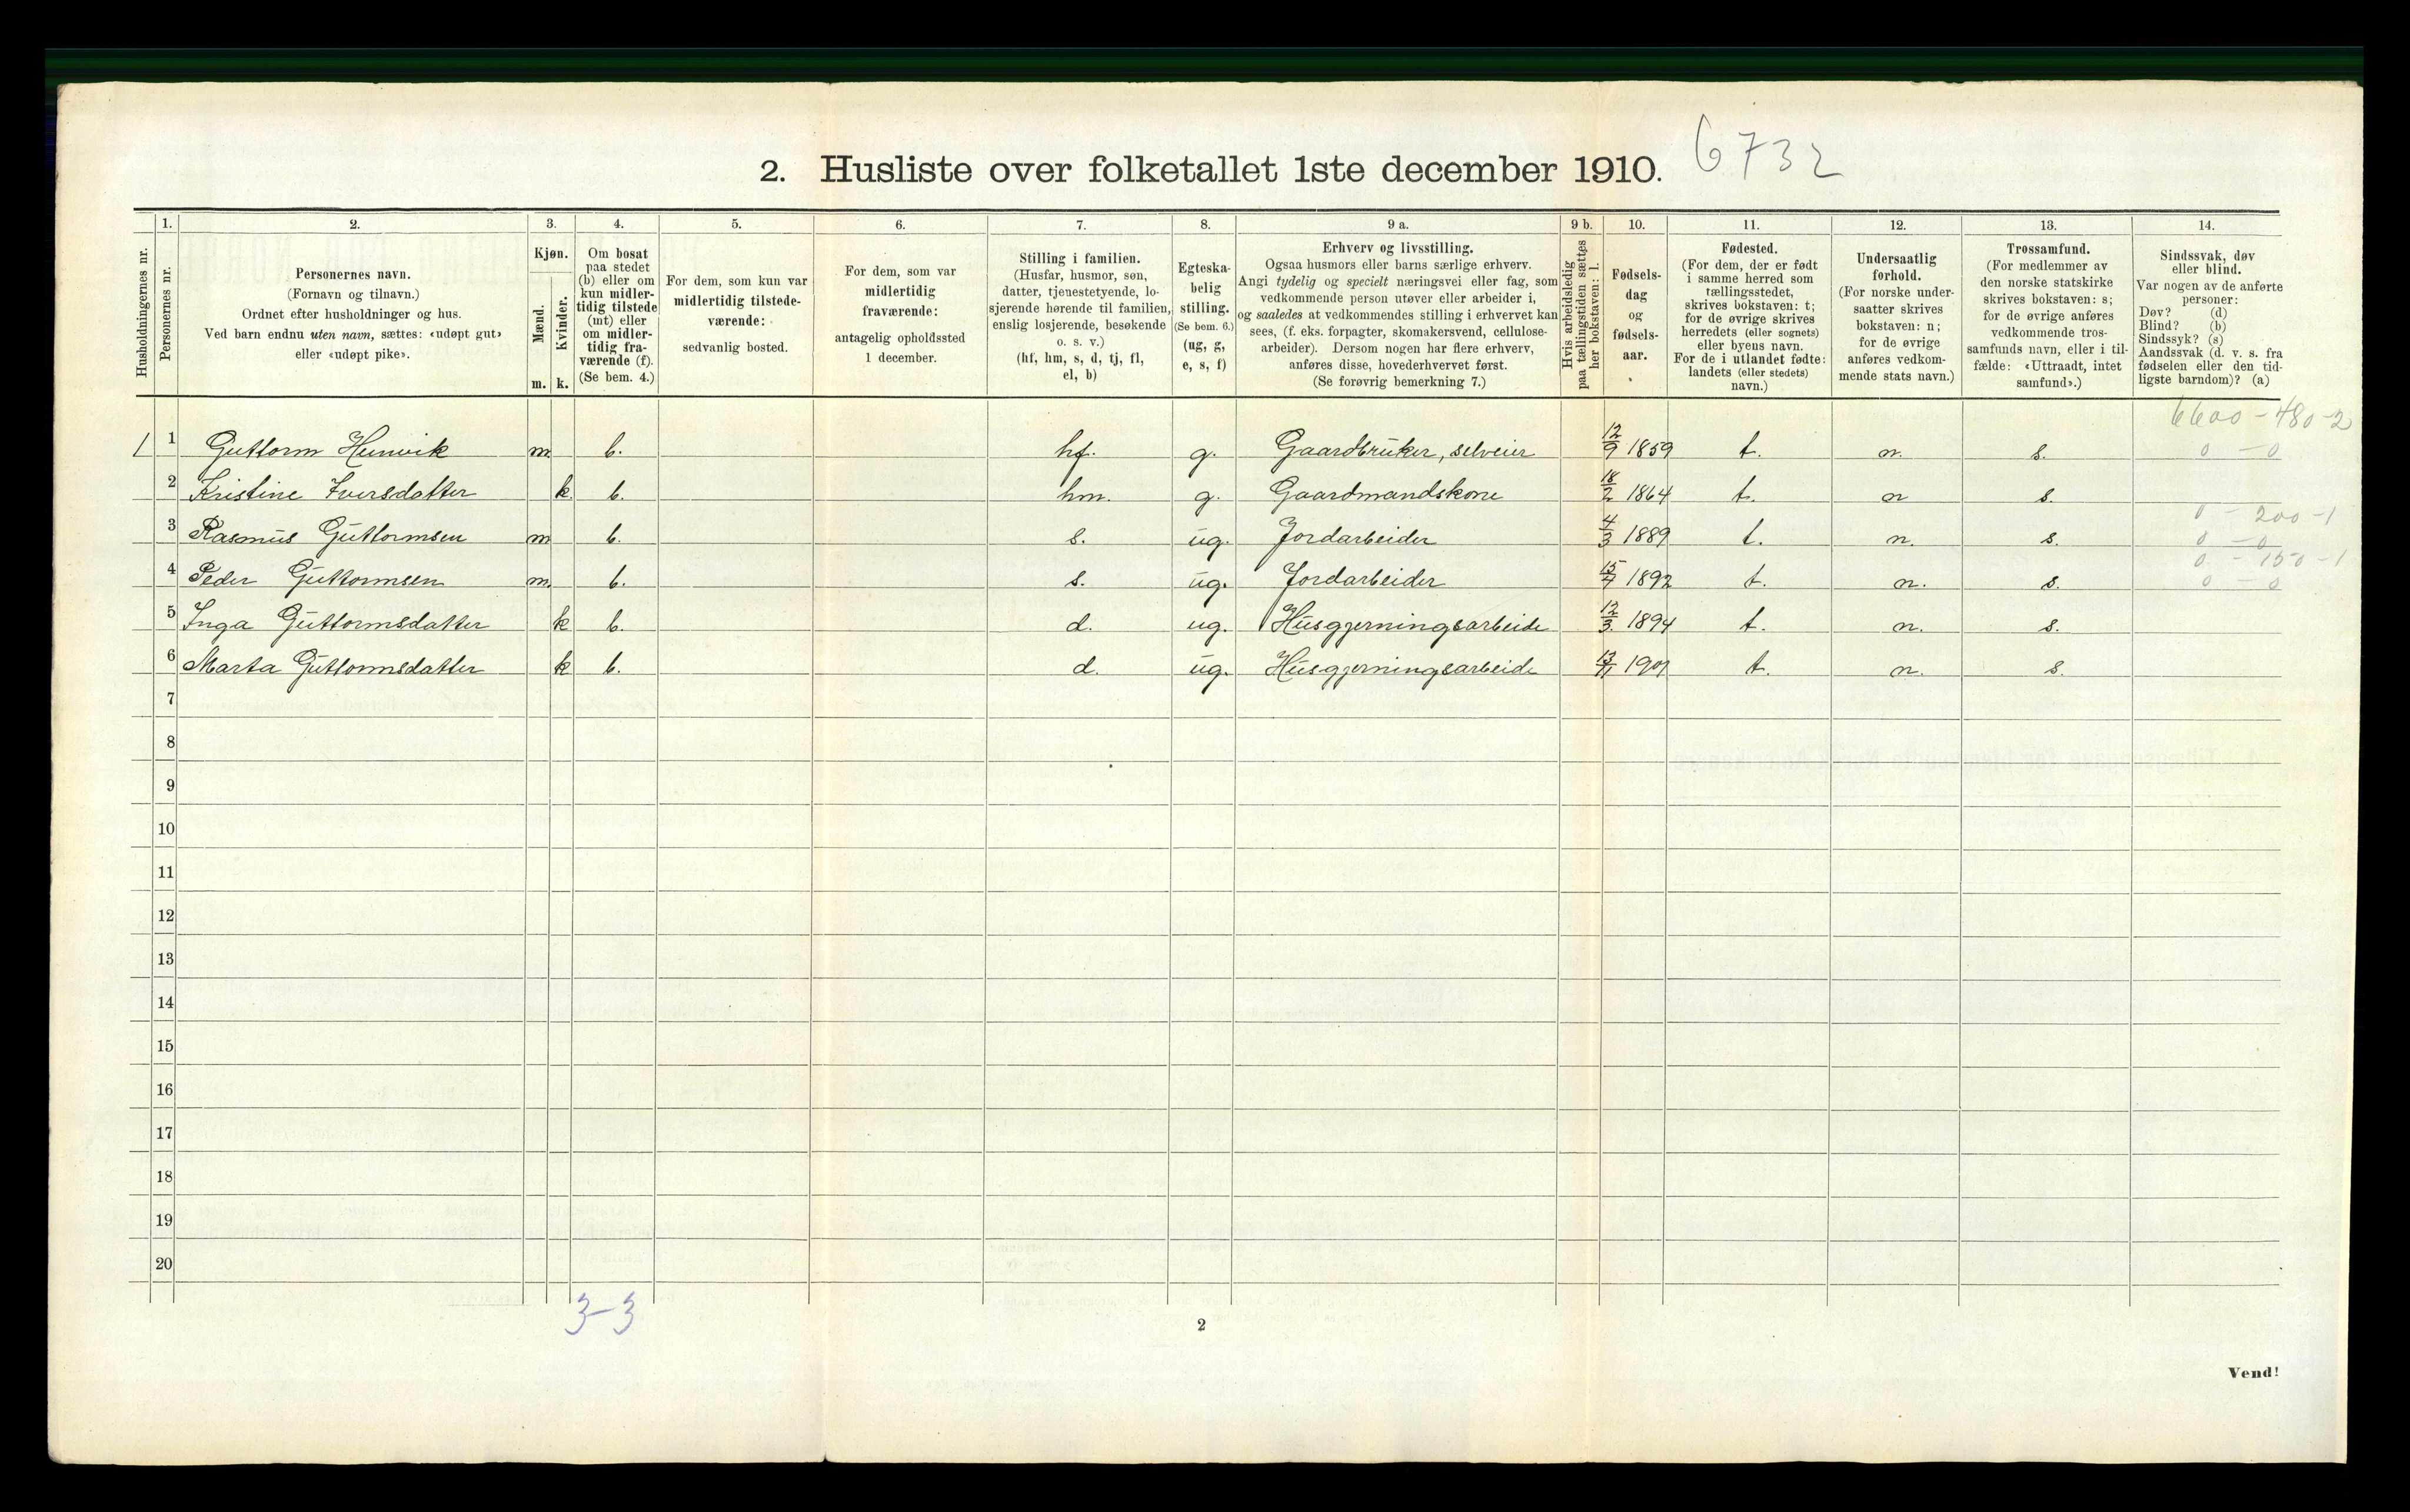 2. Husliste over folketallet 1ste december 1910. 6732
Husholdningernes nr.
1.
Personernes nr.
2.
Personernes navn.
(Fornavn og tilnavn.)
Ordnet efter husholdninger og hus.
Ved barn endnu uten navn, sættes: «udøpt gut»
eller «udøpt pike».
3.
Kjøn.
Mænd.
Kvinder.
m. k.
4.
Om bosat
paa stedet
(b) eller om
kun midler-
tidig tilstede
(mt) eller
om midler-
tidig fra-
værende (f).
(Se bem. 4.)
5.
For dem, som kun var
midlertidig tilstede-
værende:
sedvanlig bosted.
6.
For dem, som var
midlertidig
fraværende:
antagelig opholdssted
1 december.
7.
Stilling i familien.
(Husfar, husmor, søn,
datter, tjenestetyende, lo-
sjerende hørende til familien,
enslig losjerende, besøkende
o. s. v.)
(hf, hm, s, d, tj, fl,
el, b)
8.
Egteska-
belig
stilling.
(Se bem. 6.)
(ug, g,
e, s, f)
9 a.
Erhverv og livsstilling.
Ogsaa husmors eller barns særlige erhverv.
Angi tydelig og specielt næringsvei eller fag, som
vedkommende person utøver eller arbeider i,
og saaledes at vedkommendes stilling i erhvervet kan
sees, (f. eks. forpagter, skomakersvend, cellulose-
arbeider). Dersom nogen har flere erhverv,
anføres disse, hovederhvervet først.
(Se forøvrig bemerkning 7.)
9 b.
Hvis arbeidsledig
paa tællingstiden sættes
her bokstaven: l.
10.
Fødsels-
dag
og
fødsels-
aar.
11.
Fødested.
(For dem, der er født
i samme herred som
tællingsstedet,
skrives bokstaven: t;
for de øvrige skrives
herredets (eller sognets)
eller byens navn.
For de i utlandet fødte:
landets (eller stedets)
navn.)
12.
Undersaatlig
forhold.
(For norske under-
saatter skrives
bokstaven: n;
for de øvrige
anføres vedkom-
mende stats navn.)
13.
Trossamfund.
(For medlemmer av
den norske statskirke
skrives bokstaven: s;
for de øvrige anføres
vedkommende tros-
samfunds navn, eller i til-
fælde: «Uttraadt, intet
samfund».)
14.
Sindssvak, døv
eller blind.
Var nogen av de anførte
personer:
Døv? (d)
Blind? (b)
Sindssyk? (s)
Aandssvak (d. v. s. fra
fødselen eller den tid-
ligste barndom)? (a)
6600 - 480-2
1 1 Guttorm Hunvik m. b. hf. g. Gaardbruker, selveier 12/9 1859 t. n. s. 0 - 0
2 Kristine Iversdatter k. b. hm. g. Gaardmandskone 18/2 1864 t. n s.
0 - 200-1
3 Rasmus Guttormsen m b. s. ug. Jordarbeider 4/3 1889 t. n. s. 0 - 0
0 - 150-1
4 Peder Guttormsen m. b. s. ug. Jordarbeider 15/7 1892 t. n. s. 0 - 0
5 Inga Guttormsdatter k b. d. ug. Husgjerningsarbeide 12/3. 1894 t. n. s.
6 Marta Guttormsdatter k b. d. ug. Husgjerningsarbeide 1901 t. n. s.
7
8
9
10
11
12
13
14
15
16
17
18
19
20
3-3
2
Vend!